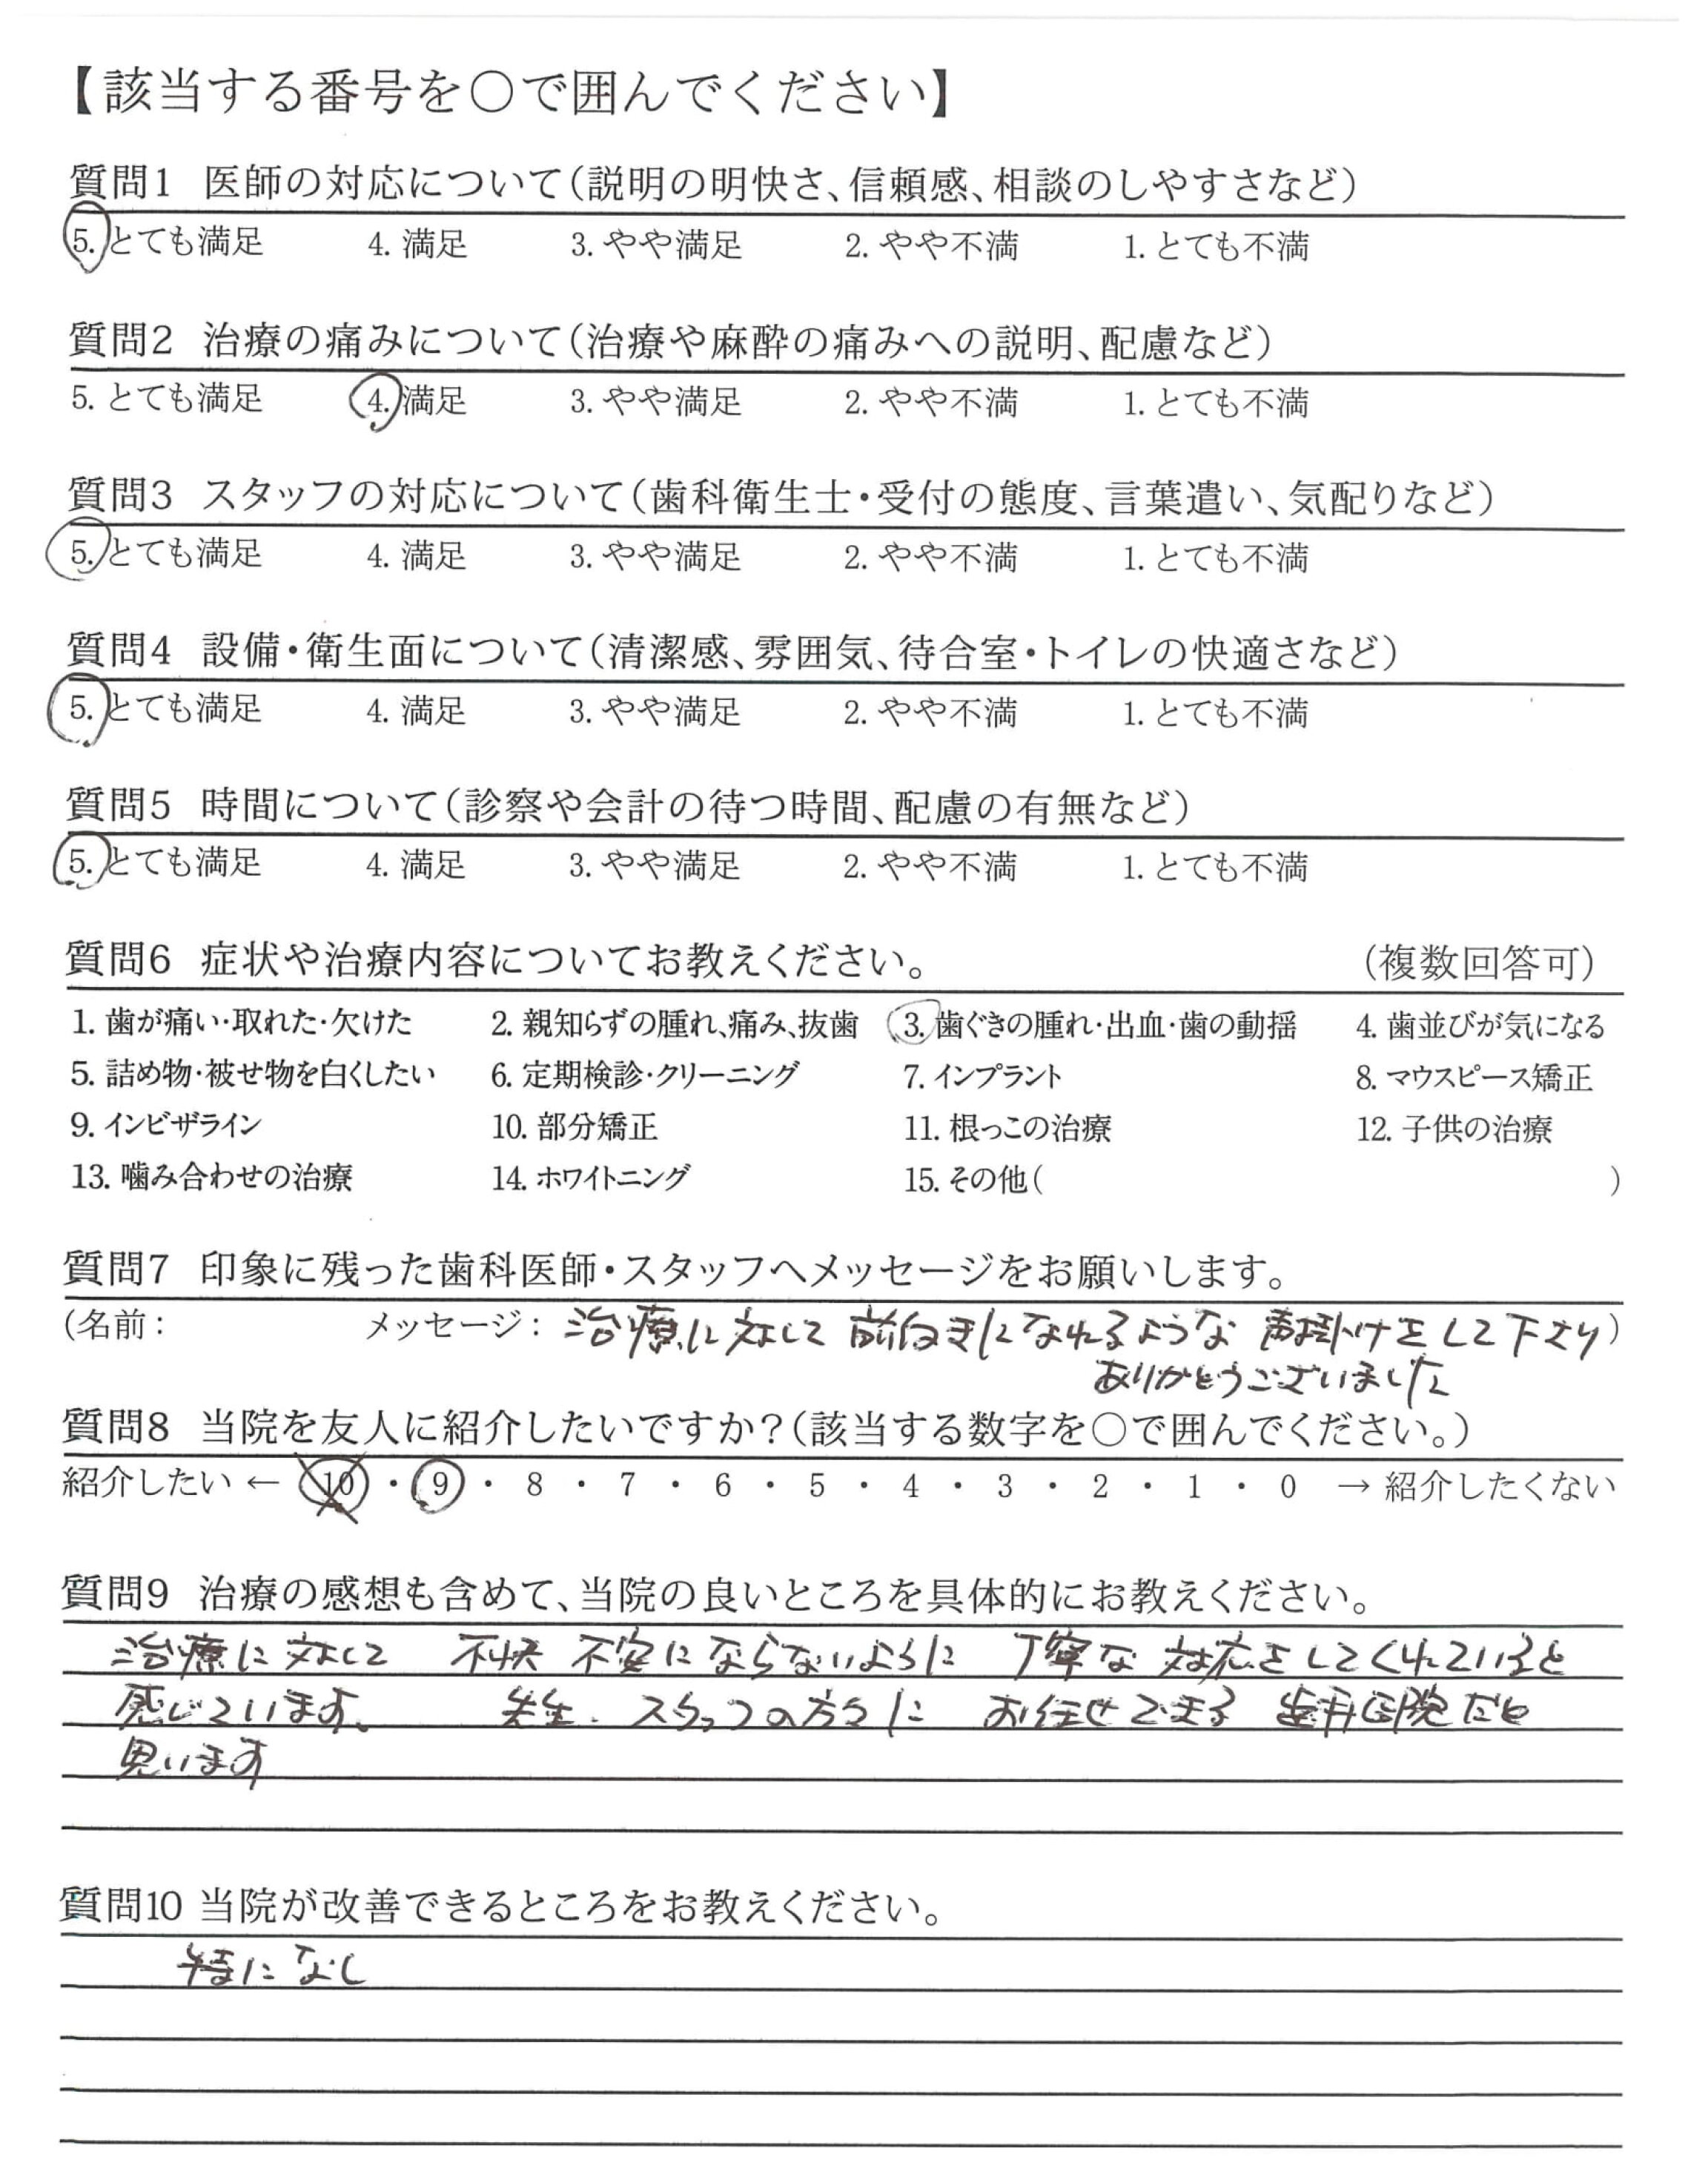 【該当する番号を○で囲んでください】
質問1 医師の対応について（説明の明快さ、信頼感、相談のしやすさなど）
5. とても満足 4. 満足 3. やや満足 2. やや不満 1. とても不満
質問2 治療の痛みについて（治療や麻酔の痛みへの説明、配慮など）
5. とても満足 4. 満足 3. やや満足 2. やや不満 1. とても不満
質問3 スタッフの対応について（歯科衛生士・受付の態度、言葉遣い、気配りなど）
5. とても満足 4. 満足 3. やや満足 2. やや不満 1. とても不満
質問4 設備・衛生面について（清潔感、雰囲気、待合室・トイレの快適さなど）
5. とても満足 4. 満足 3. やや満足 2. やや不満 1. とても不満
質問5 時間について（診察や会計の待つ時間、配慮の有無など）
5. とても満足 4. 満足 3. やや満足 2. やや不満 1. とても不満
質問6 症状や治療内容についてお教えください。 （複数回答可）
1. 歯が痛い・取れた・欠けた 2. 親知らずの腫れ、痛み、抜歯 3. 歯ぐきの腫れ・出血・歯の動揺 4. 歯並びが気になる
5. 詰め物・被せ物を白くしたい 6. 定期検診・クリーニング 7. インプラント 8. マウスピース矯正
9. インビザライン 10. 部分矯正 11. 根っこの治療 12. 子供の治療
13. 噛み合わせの治療 14. ホワイトニング 15. その他（ ）
質問7 印象に残った歯科医師・スタッフへメッセージをお願いします。
（名前： メッセージ：治療に対して 前向きになれるような 声掛けをして下さり）
ありがとうございました
質問8 当院を友人に紹介したいですか？（該当する数字を○で囲んでください。）
紹介したい ← 10 ・ 9 ・ 8 ・ 7 ・ 6 ・ 5 ・ 4 ・ 3 ・ 2 ・ 1 ・ 0 → 紹介したくない
質問9 治療の感想も含めて、当院の良いところを具体的にお教えください。
治療に対して 不快 不安にならないように 丁寧な 対応をしてくれていると
感じています。 先生、スタッフの方々に お任せできる 歯科医院だと
思います
質問10 当院が改善できるところをお教えください。
特になし